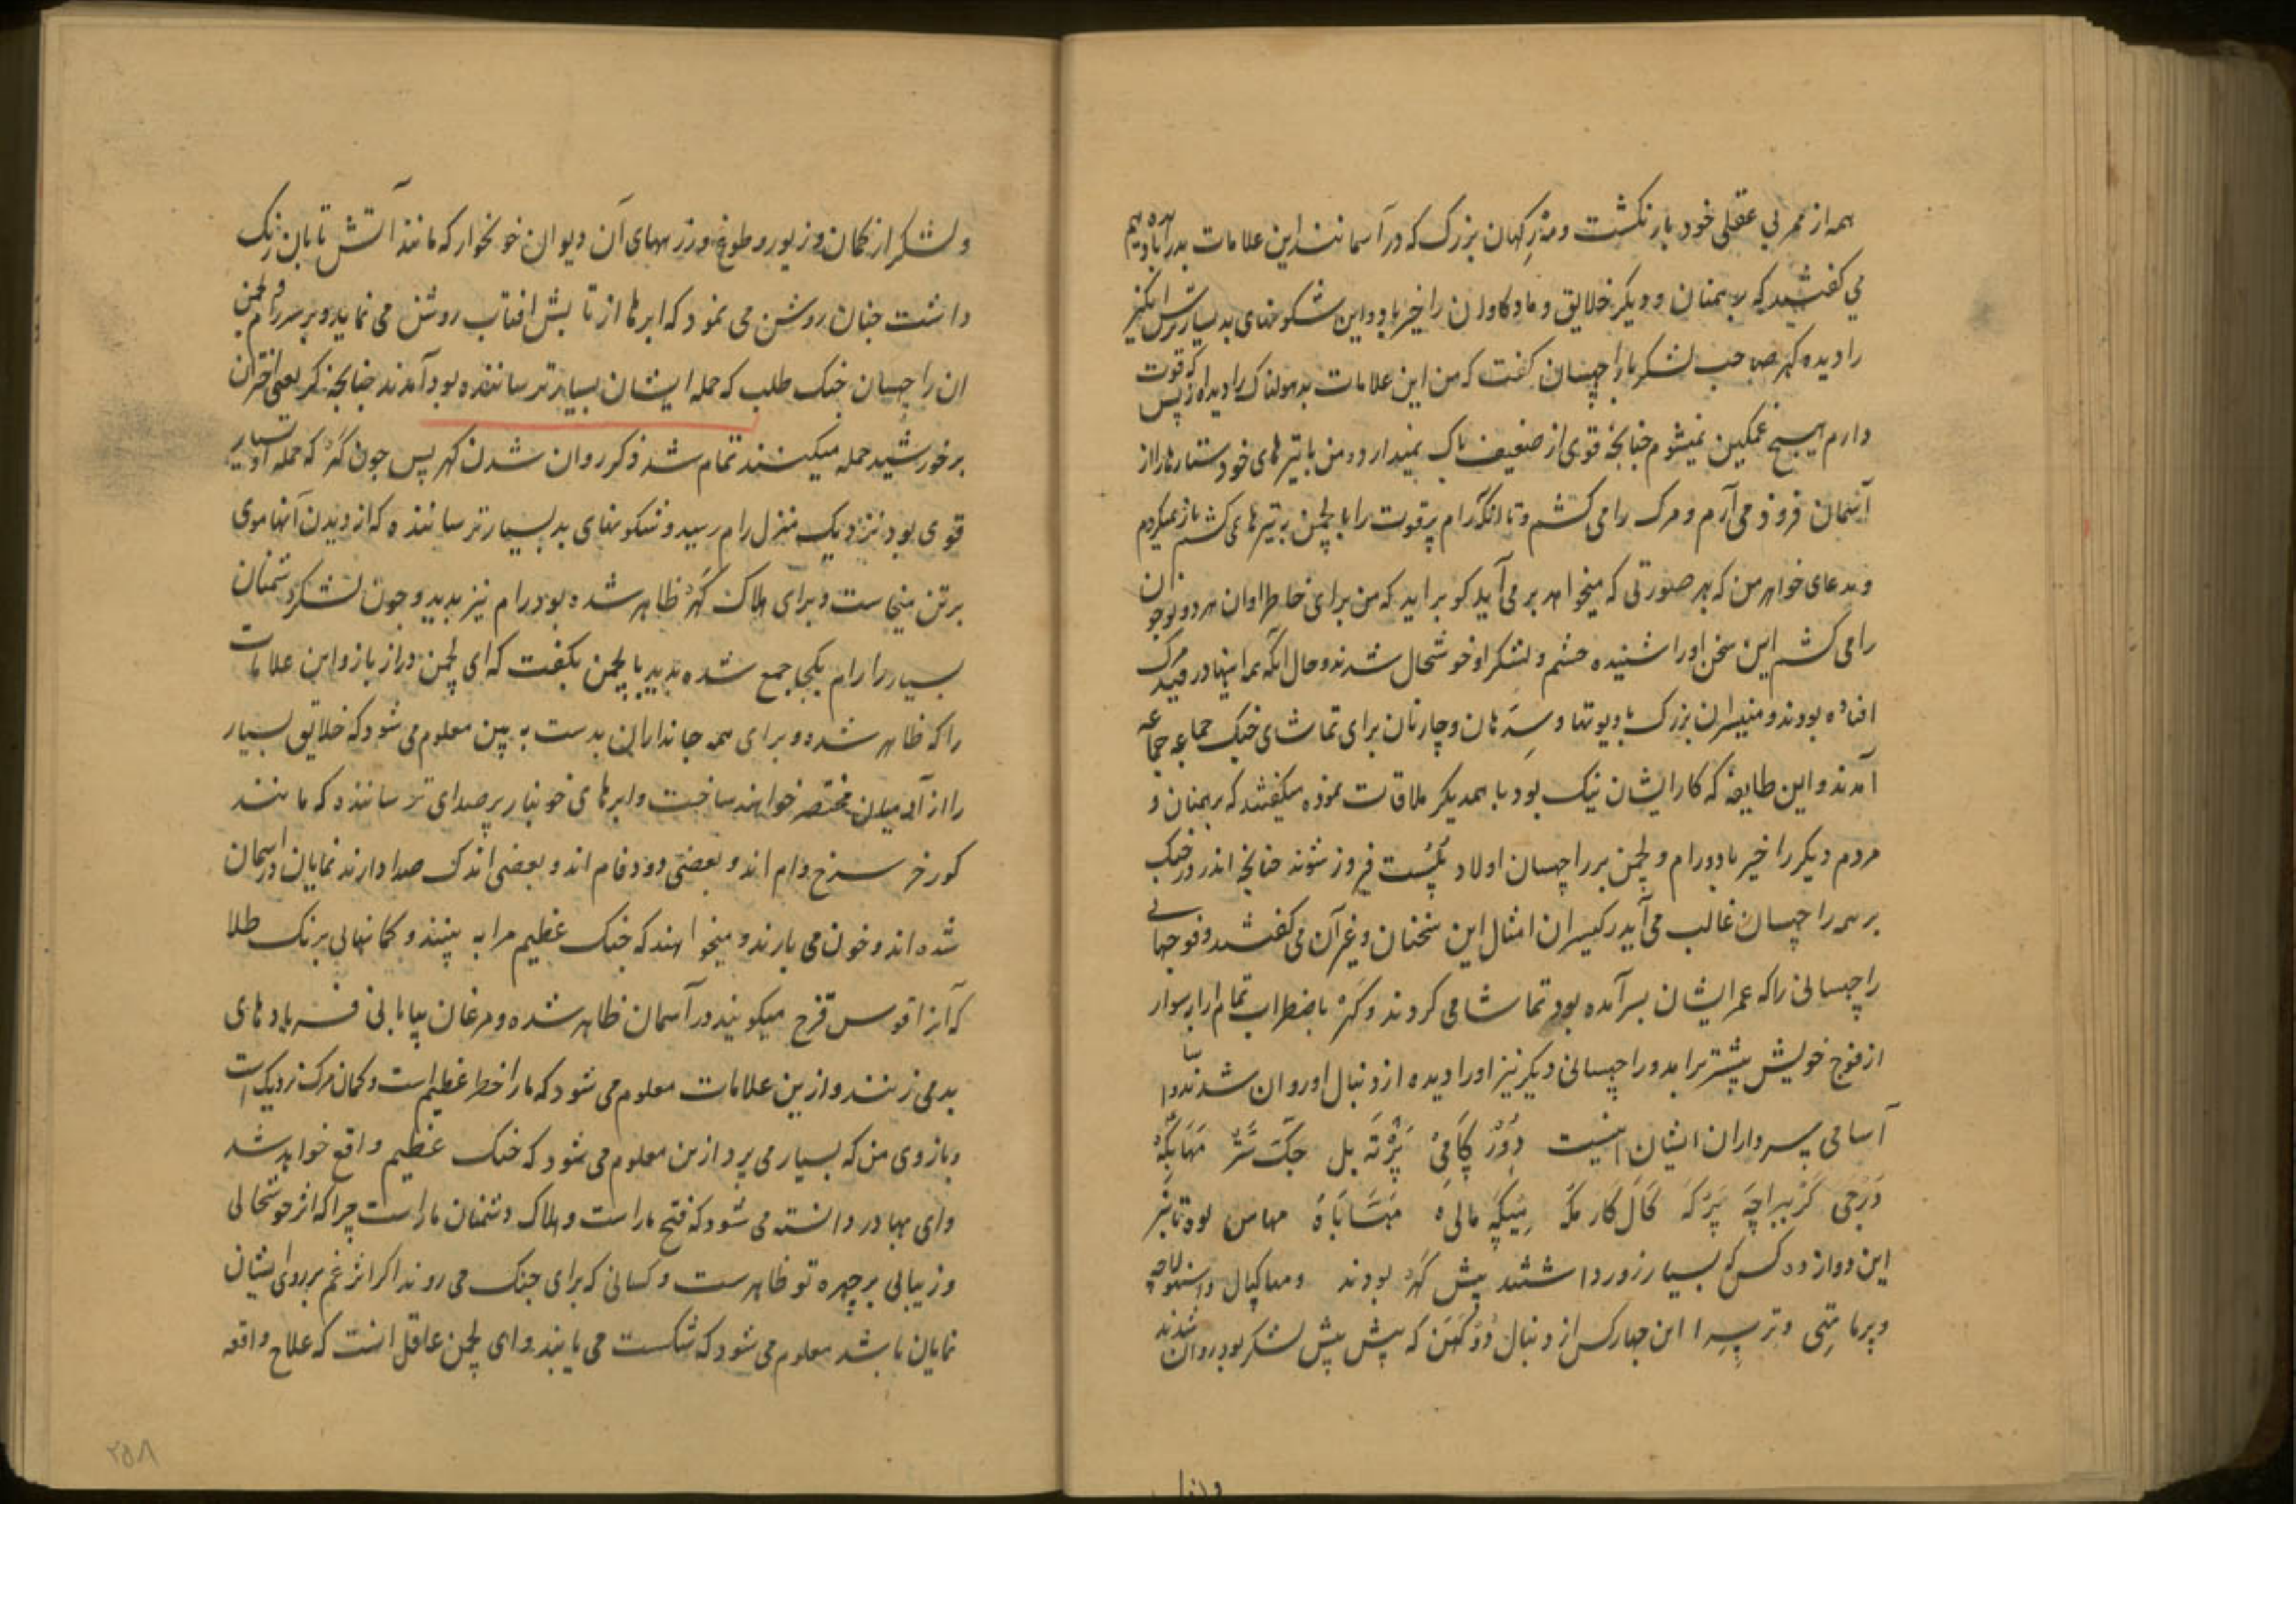 همه از ممر بی عقلی خود باز نکشت و مرکهان بزرک که در آسمانند این علامات بد را دیده
می کفتند که برهمنان و دیکر خلایق و ماده کاوان را خیر باد و این شکونهای بد بسیار ترس انکیز
را دیده کهر صاحب لشکر با راچهسان کفت که من این علامات بد هولناک را دیده از بس که قوت
دارم هیچ غمکین نمیشوم چنانچه قوی از ضعیف باک نمیدارد و من با تیرهای خود ستارها را از
آسمان فرود می آرم و مرک را می کشم و تا آنکه رام پرقوت را با لچمن به تیرهای کشم باز نمیکردم
و مدعای خواهر من که بهر صورتی که میخواهد بر می آید کو براید که من برای خاطر او آن هر دو نوجوان
را می کشم این سخن او را شنیده حشم و لشکر او خوشحال شدند و حال آنکه همه اینها در قید مرک
افتاده بودند و منیسران بزرک با دیوتها و سدهان و چارنان برای تماشای جنک جماعه جماعه
آمدند و این طایفه که کار ایشان نیک بود با همدیکر ملاقات نموده میکفتند که برهمنان و
مردم دیکر را خیر باد و رام و لچمن بر راچهسان اولاد پلست فیروز شوند چنانچه اندر در جنک
بر همه راچهسان غالب می آید رکیسران امثال این سخنان و غیر آن می کفتند و فوجهای
راچهسانی را که عمر ایشان بسر آمده بود تماشا می کردند و کهر باضطراب تمام ارابه سوار
از فوج خویش پیشتر برامد و راچهسانی دیکر نیز او را دیده از دنبال او روان شدند و
آسامی سرداران ایشان اینست دور کامی پرته بل جک ستر مهابکه
درجی کربیراچه پرکه کال کارمکه میکه مالی مهاباه مهاس لوه تانبر
این دوازده کس که بسیار زور داشتند پیش کهر بودند و مهاکپال و استهولاچه
و پرماتهی و ترسرا این چهار کس از دنبال دوکهن که پیش پیش لشکر بود روان شدند
و لشکر از کمان و زیور و طوغ و زرههای آن دیوان خونخوار که مانند آتش تابان رنک
داشت چنان روشن می نمود که ابرها از تابش افتاب روشن می نماید و بر سر رام و لچمن
ان راچهسان جنک طلب که حمله ایشان بسیار ترساننده بود آمدند چنانچه کر یعنی اختران
بر خورشید حمله میکنند تمام شد ذکر روان شدن کهر پس چون کهر که حمله او بسیار
قوی بود نزدیک منزل رام رسید و شکونهای بد بسیار ترساننده که از دیدن آنها موی
بر تن میخاست و برای هلاک کهر ظاهر شده بود رام نیز بدید و چون لشکر دشمنان
بسیار را رام یکجا جمع شده بدید با لچمن بکفت که ای لچمن دراز بازو این علامات
را که ظاهر شده و برای همه جانداران بدست به بین معلوم می شود که خلایق بسیار
را از آدمیان مختصر خواهند ساخت و ابرهای خونبار پر صدای ترساننده که مانند
کورخر سرخ وام اند و بعضی دودفام اند و بعضی اندک صدا دارند نمایان در آسمان
شده اند و خون می بارند و میخواهند که جنک عظیم مرا به بینند و کمانهایی برنک طلا
که آنرا قوس قزح میکویند در آسمان ظاهر شده و مرغان بیابانی فریادهای
بد می زنند و ازین علامات معلوم می شود که ما را خطر عظیم است و کمان مرک نزدیک است
و بازوی من که بسیار می پرد ازین معلوم می شود که جنک عظیم واقع خواهد شد
و ای بهادر دانسته می شود که فتح ما راست و هلاک دشمنان ما راست چرا که اثر خوشحالی
و زیبایی بر چهره تو ظاهرست و کسانی که برای جنک می روند اکر اثر غم بر روی ایشان
نمایان باشد معلوم می شود که شکست می یابند و ای لچمن عاقل انست که علاج واقعه
۲۵۸